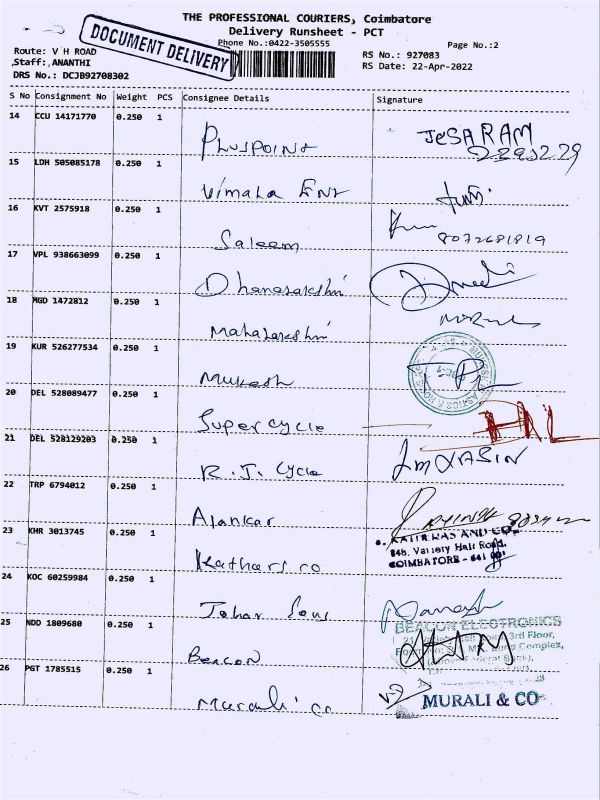 THE PROFESSIONAL COURIERS, Coimbatore
Delivery Runsheet - PCT
DOCUMENT DELIVERY
Phone No.:0422-3505555
Page No.:2
Route: V H ROAD
RS No.: 927083
Staff: ANANTHI
RS Date: 22-Apr-2022
DRS No.: DCJB92708302
S No Consignment No Weight PCS Consignee Details Signature
14 CCU 14171770 0.250 1
Pluspoint JeSARAM
15 LDH 505085178 0.250 1
Vimala Ent
16 KVT 2575918 0.250 1
Saleem 8072681819
17 VPL 938663099 0.250 1
Dhanarakshmi
18 MGD 1472812 0.250 1
Maharakshmi
19 KUR 526277534 0.250 1
Mukesh
20 DEL 528089477 0.250 1
Super cycle
21 DEL 528129203 0.250 1
R.J. Cycle
22 TRP 6794012 0.250 1
Alankar
23 KHR 3013745 0.250 1
AND CO.
848, Variety Hall Road,
COIMBATORE - 641 001
Kathers co
24 KOC 60259984 0.250 1
Johar Sons
25 NDD 1809680 0.250 1
BEACON ELECTRONICS
3rd Floor,
Complex,
Beacon
26 PGT 1785515 0.250 1
Murali co MURALI & CO